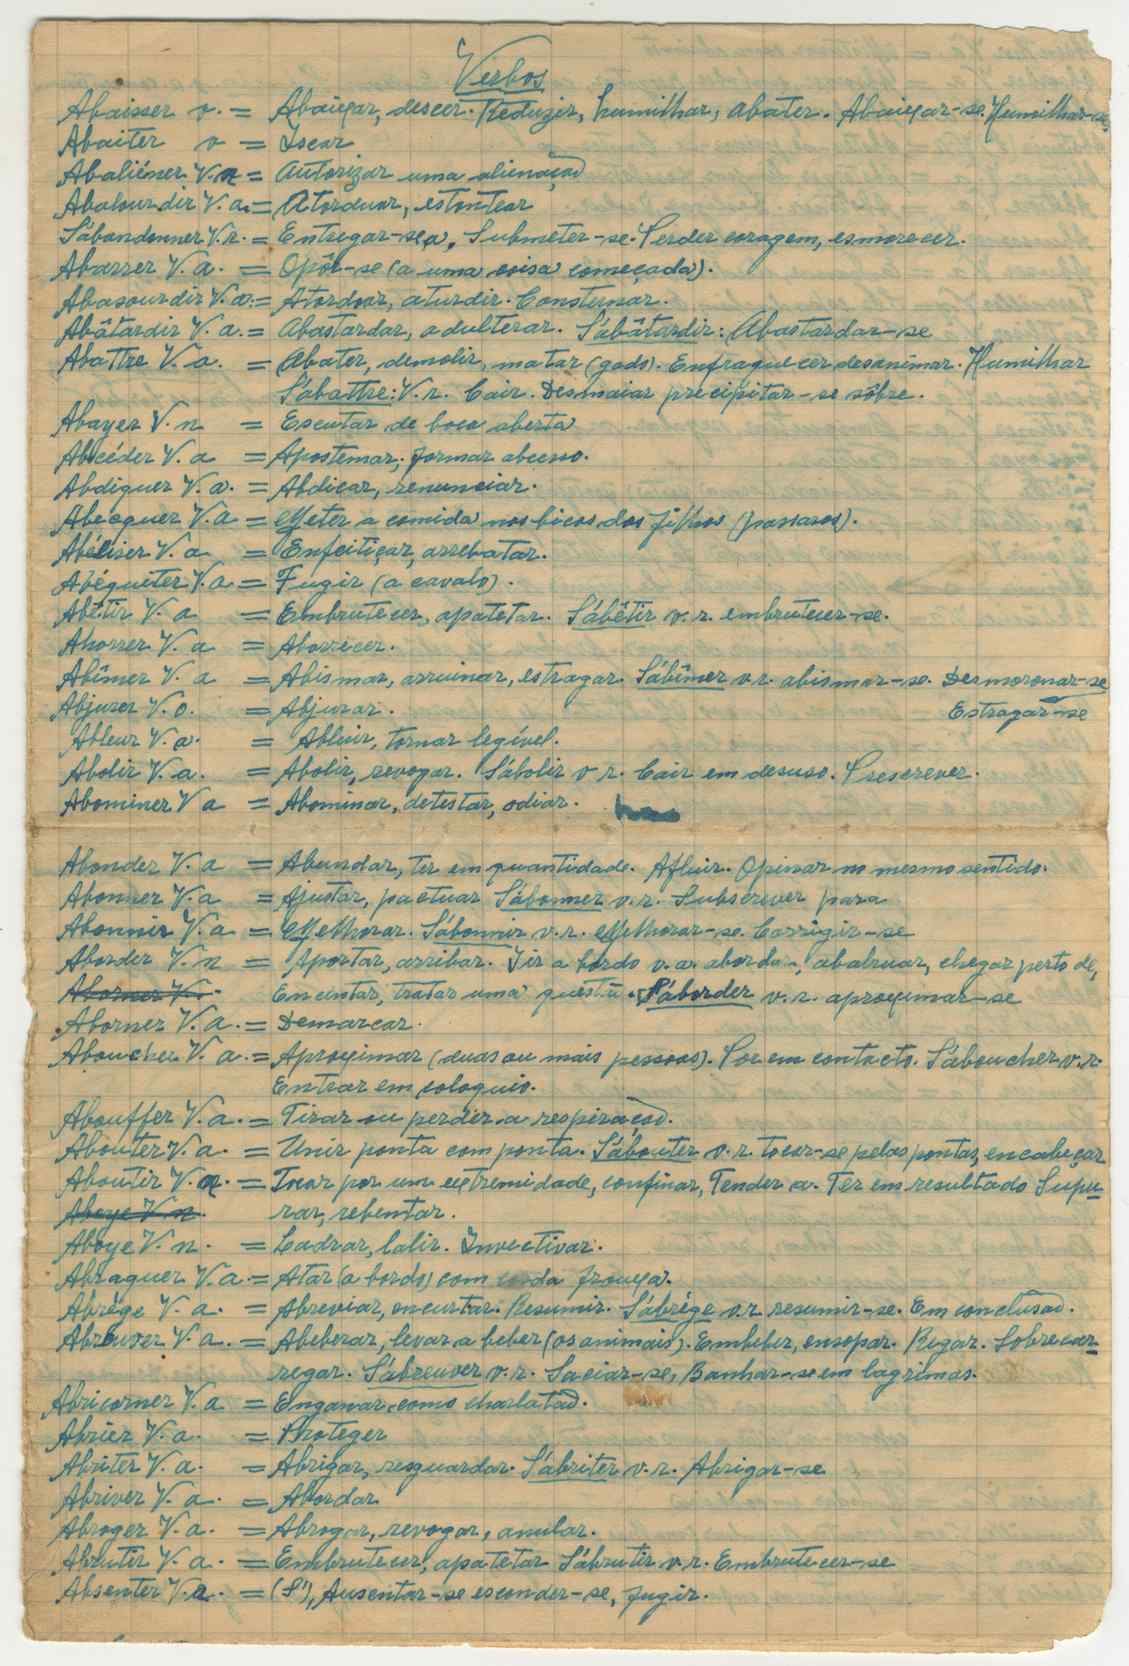 Verbos
Abaisser v. = Abaixar, descer. Reduzir, humilhar, abater. Abaixar-se. Humilhar-se
Abaiter v = Iscar
Abaliéner V. n = Autorizar uma alienação
Abalourdir V. a. = Atorduar, estontear
S'abandonner V. r. = Entregar-se a, Submeter-se. Perder coragem, esmorecer.
Abarrer V. a. = Opôr-se (a uma coisa começada).
Abasourdir V. a. = Atordoar, aturdir. Consternar.
Abâtardir V. a. = Abastardar, adulterar. S'abâtardir: Abastardar-se
Abattre V. a. = Abater, demolir, matar (gado). Enfraquecer desanimar. Humilhar
S'abattre: V. r. Cair. Desmaiar precipitar-se sôbre.
Abayer V. n = Escutar de boca aberta
Abcéder V. a = Apostemar, formar abcesso.
Abdiquer V. a. = Abdicar, renunciar.
Abecquer V. a = Meter a comida nos bicos dos filhos (passaros).
Abéliser V. a = Enfeitiçar, arrebatar.
Abéqueter V. a = Fugir (a cavalo).
Abêtir V. a = Embrutecer, apatetar. S'abêtir v. r. embrutecer-se.
Ahorrer V. a = Aborrecer.
Abîmer V. a = Abismar, arruinar, estragar. S'abîmer v. r. abismar-se. Desmoronar-se
Abjurer V. a. = Abjurar. Estragar-se
Ableur V. a. = Abluir, tornar legível.
Abolir V. a. = Abolir, revogar. S'abolir v r. Cair em desuso. Prescrever.
Abominer V a = Abominar, detestar, odiar.
Abonder V. a = Abundar, ter em quantidade. Afluir. Opinar no mesmo sentido.
Abonner V. a = Ajustar, pactuar S'abonner v. r. Subscrever para
Abonnir V. a = Melhorar. S'abonnir v. r. Melhorar-se. Corrigir-se
Aborder V. n = Aportar, arribar. Ir a bordo v. a. abordar, abalruar, chegar perto de,
Aborner V. Encintar, tratar uma questã. S'aborder v. r. aproximar-se
Aborner V. a. = Demarcar.
Aboucher V. a. = Aproximar (duas ou mais pessoas). Por em contacto. S'aboucher v. r.
Entrar em coloquio.
Abouffer V. a. = Tirar ou perder a respiração.
Abouter V. a. = Unir ponta com ponta. S'abouter v. r. tocar-se pelas pontas, encabeçar
Aboutir V. n. = Tocar por um extremidade, confinar, Tender a. Ter em resultado Supu-
Aboye V n rar, rebentar.
Aboye V. n. = Ladrar, latir. Invectivar.
Abraquer V. a. = Atar (a bordo) com corda frouxa.
Abrége V. a. = Abreviar, encurtar. Resumir. S'abrége v. r. resumir-se. Em conclusão.
Abreuver V. a. = Abeberar, levar a beber (os animais). Embeber, ensopar. Regar. Sobrecar-
regar. S'abreuver v. r. Saciar-se, Banhar-se em lagrimas.
Abricorner V. a = Enganar como charlatão.
Abrier V. a. = Proteger
Abriter V. a. = Abrigar, resguardar. S'abriter v. r. Abrigar-se
Abriver V. a. = Abordar
Abroger V. a. = Abrogar, revogar, anular.
Abrutir V. a. = Embrutecer, apatetar S'abrutir v. r. Embrutecer-se
Absenter V. r. = (S'), Ausentar-se esconder-se, fugir.